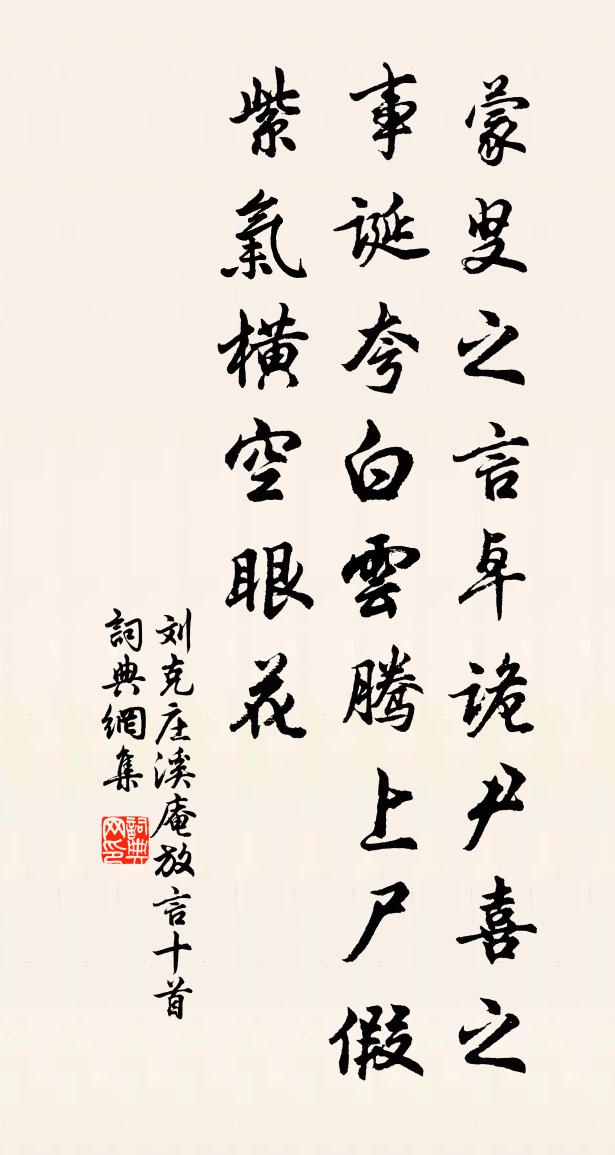 蒙叟之言卓詭尹喜之
事誕夸白雲騰上尸假
紫氣橫空眼花
刘克庄溪庵放言十首
詞典網集
詞典网印